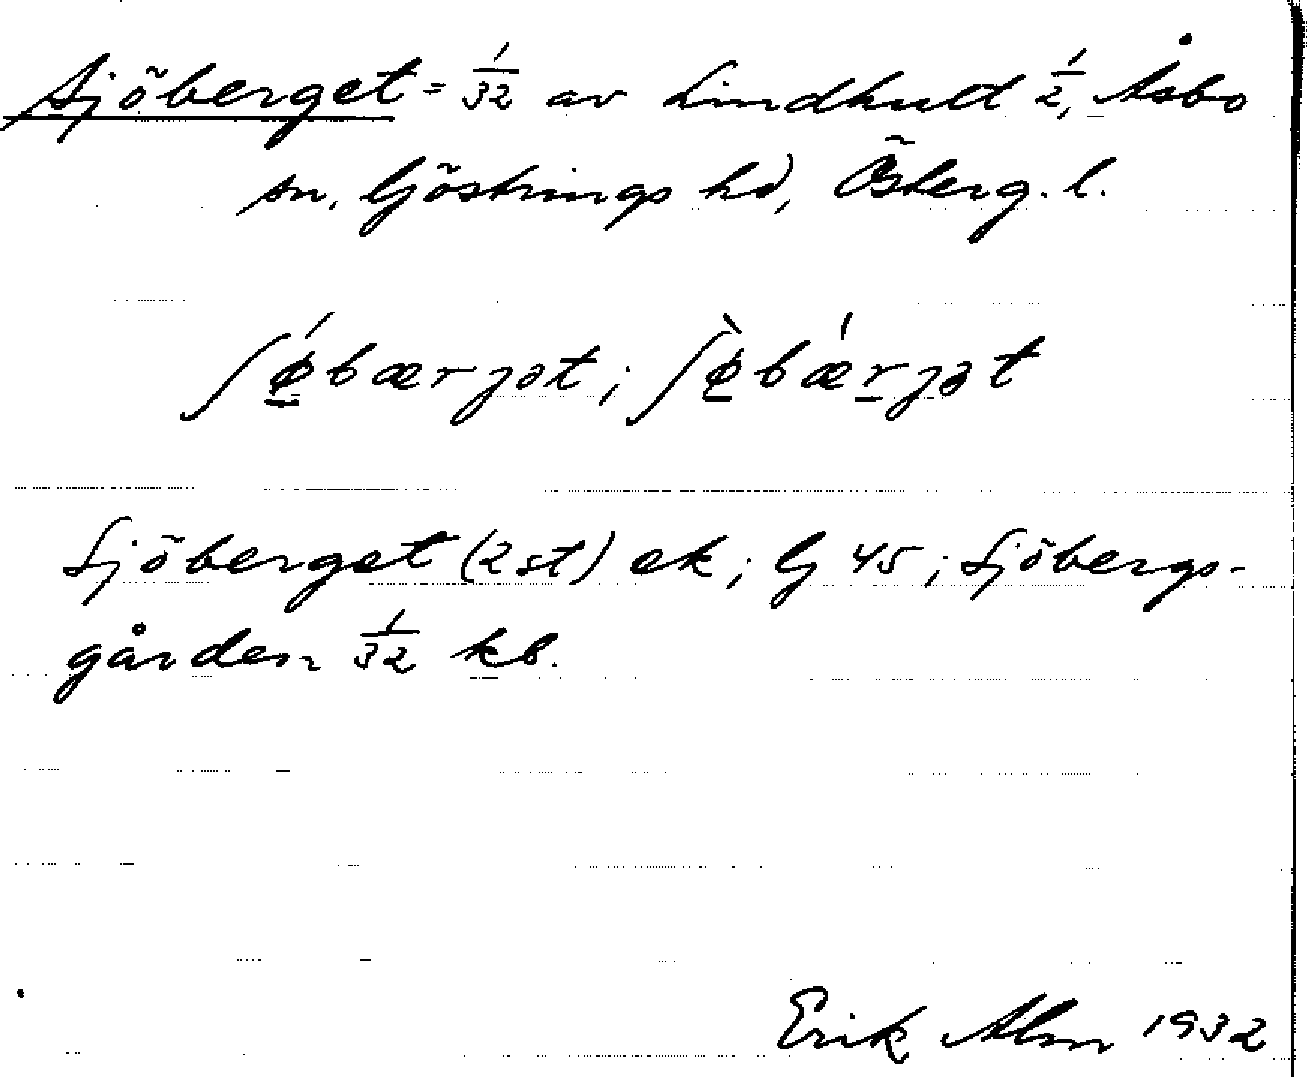 Sjöberget = 1/32 av Lindhult 1/2, Åsbo
sn, Göstrings hd, Österg. l.
ʃǿ̱bærjət; ʃø̱̀bǽṟjət
Sjöberget (2 st) ek; Gj 45; Sjöbergs-
gården 1/32 kb.
Erik Alm 1932